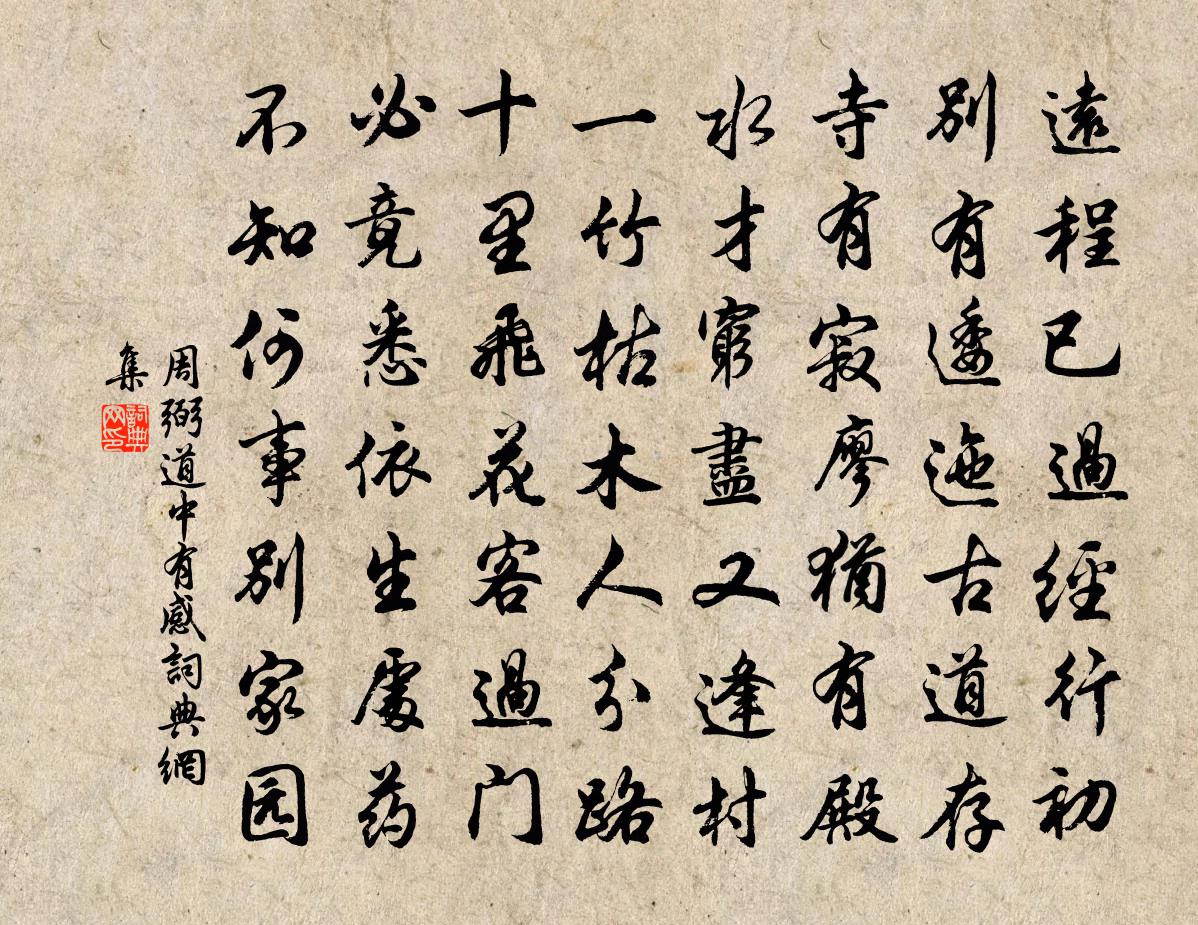 遠程已過經行初
別有逶迤古道存
寺有寂寥猶有殿
水才窮盡又逢村
一竹枯木人分路
十里飛花客過门
必竟悉依生處药
不知何事别家园
周弼道中有感詞典網
集
詞典
网印